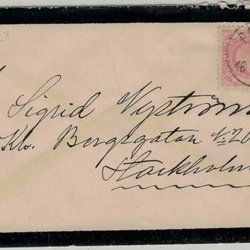 Sigrid Nyström
Kls. Bergsgatan No 20
Stockholm